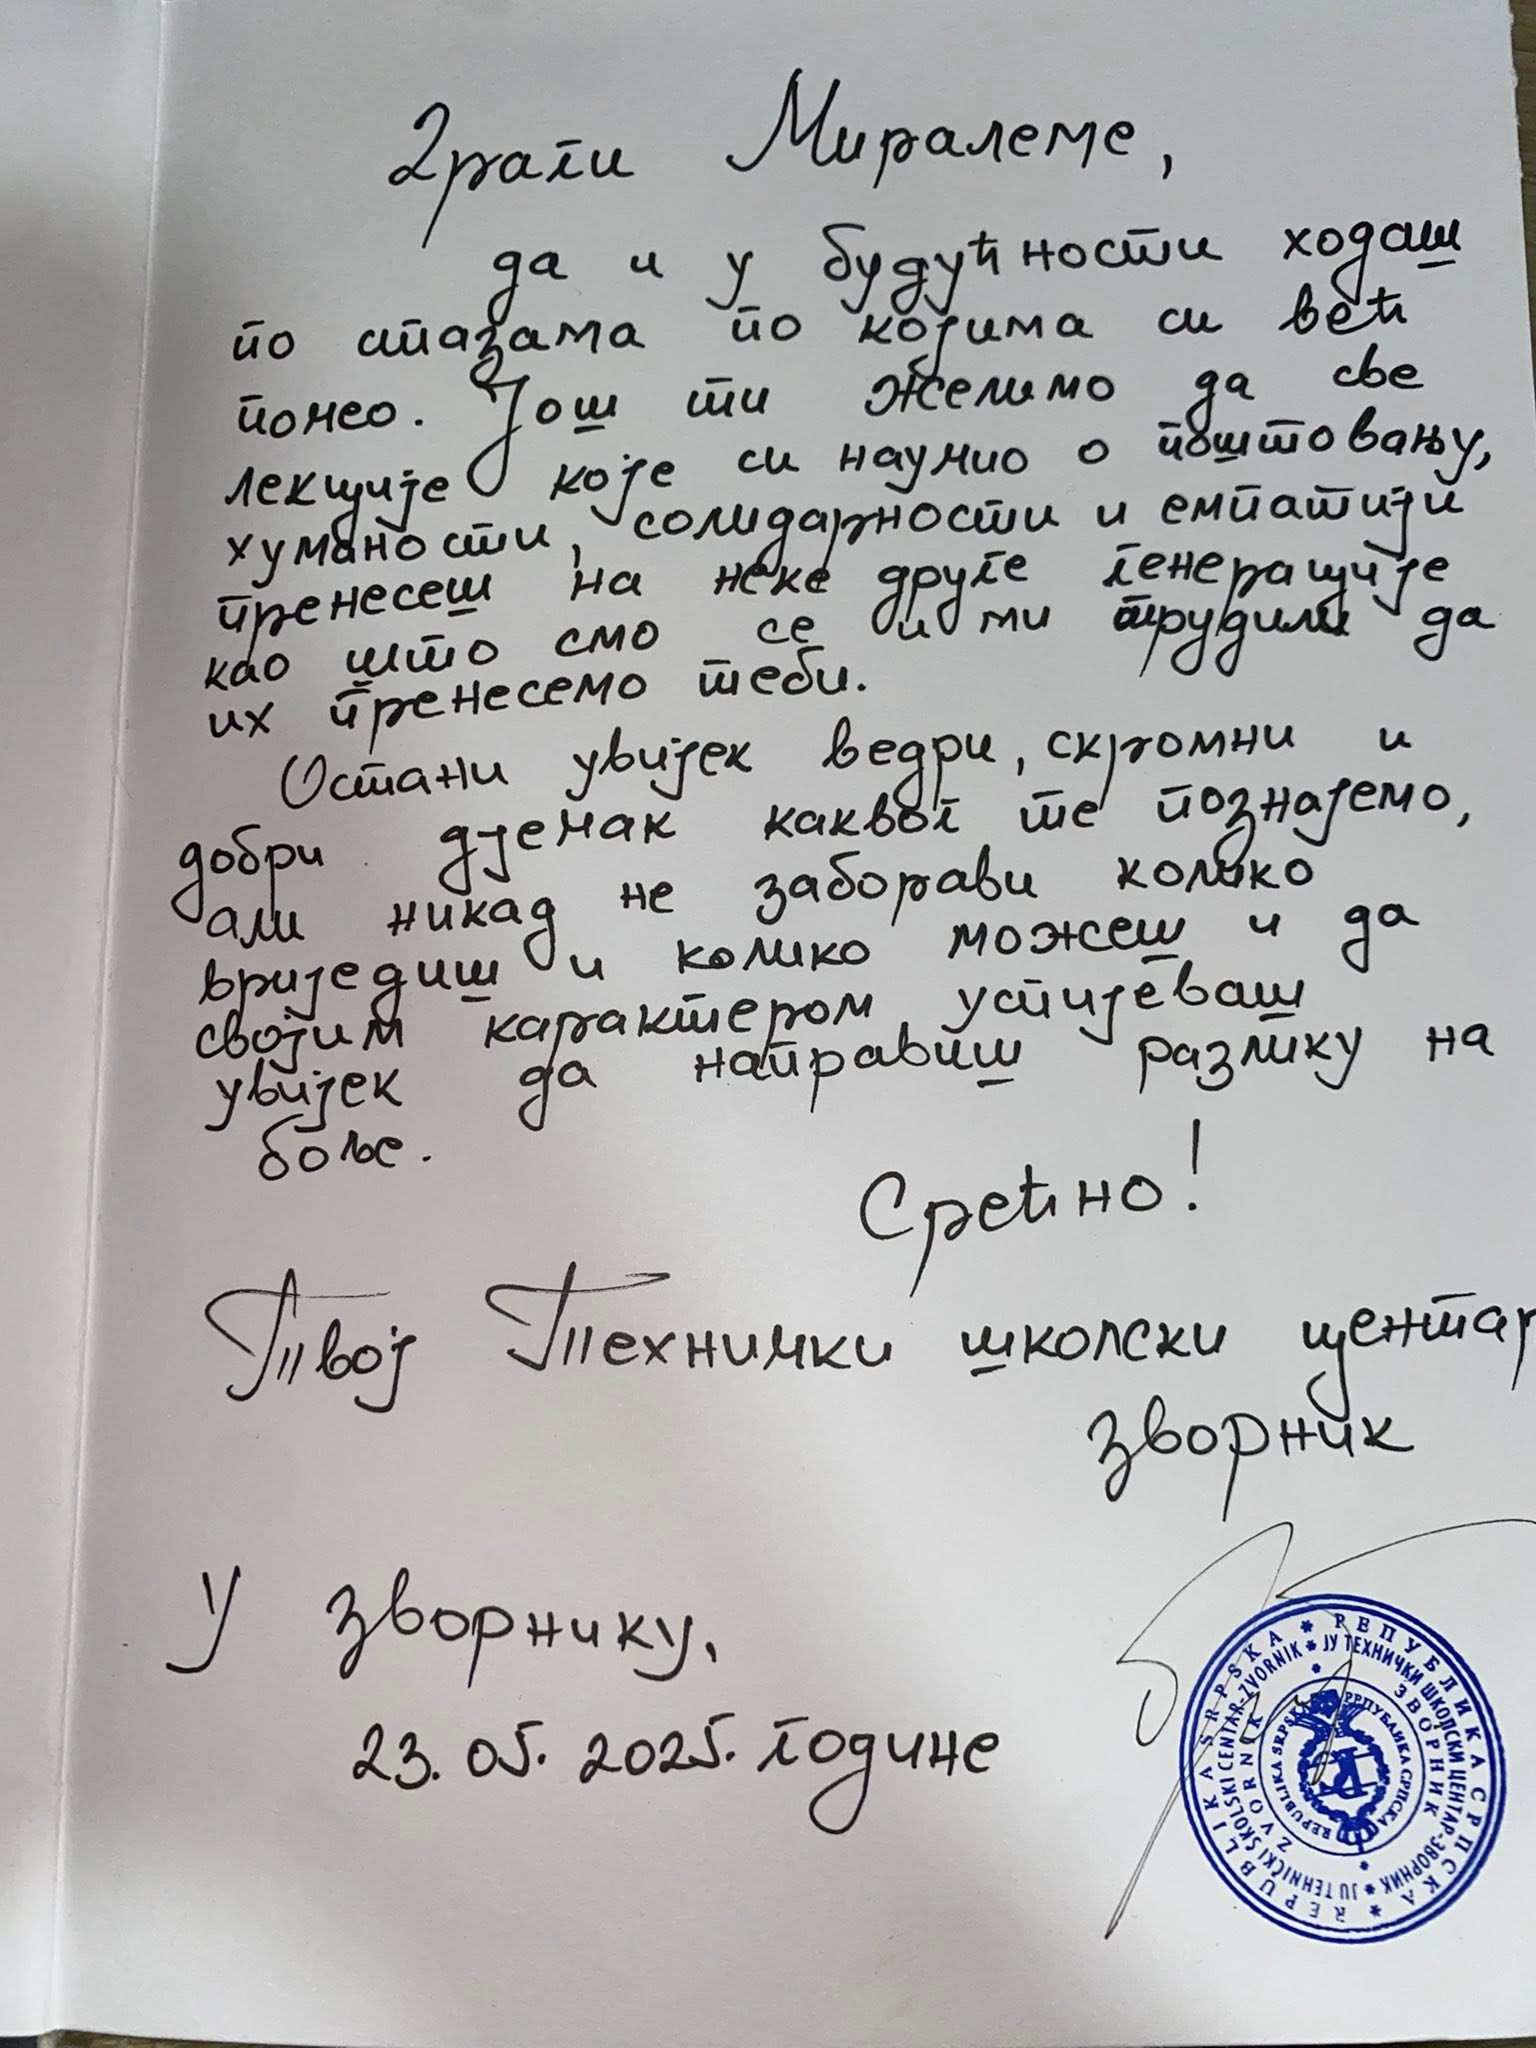 Драги Миралеме,
да и у будућности ходаш
по стазама по којима си већ
почео. Још ти желимо да све
лекције које си научио о поштовању,
хуманости, солидарности и емпатији
пренесеш на неке друге генерације
као што смо се и ми трудили да
их пренесемо теби.
Остани увијек ведри, скромни и
добри дјечак каквог те познајемо,
али никад не заборави колико
вриједиш и колико можеш и да
својим карактером успијеваш
увијек да направиш разлику на
боље.
Срећно!
Твој Технички школски центар
Зворник
У Зворнику,
23.05.2025. године
REPUBLIKA SRPSKA * РЕПУБЛИКА СРПСКА *
JU TEHNIČKI ŠKOLSKI CENTAR-ZVORNIK * ЈУ ТЕХНИЧКИ ШКОЛСКИ ЦЕНТАР-ЗВОРНИК *
ZVORNIK * ЗВОРНИК *
REPUBLIKA SRPSKA РЕПУБЛИКА СРПСКА